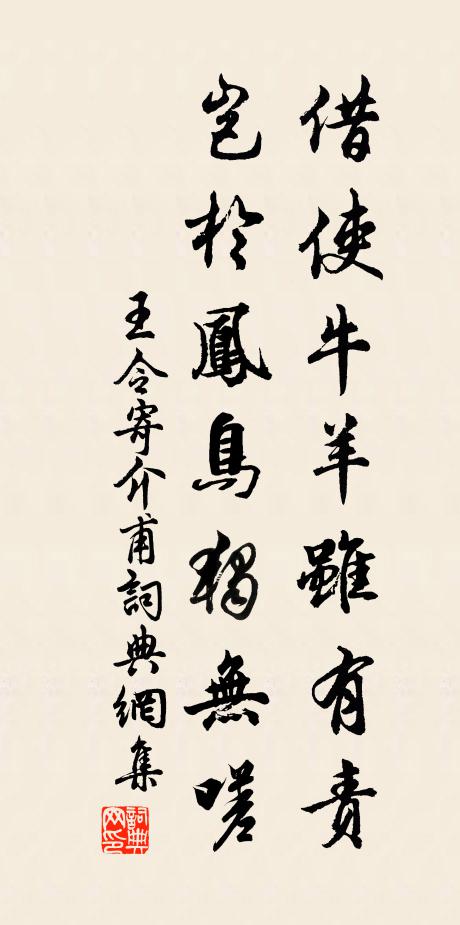 借使牛羊雖有責
豈於鳳鳥獨無嗟
王令寄介甫詞典網集
詞典網印